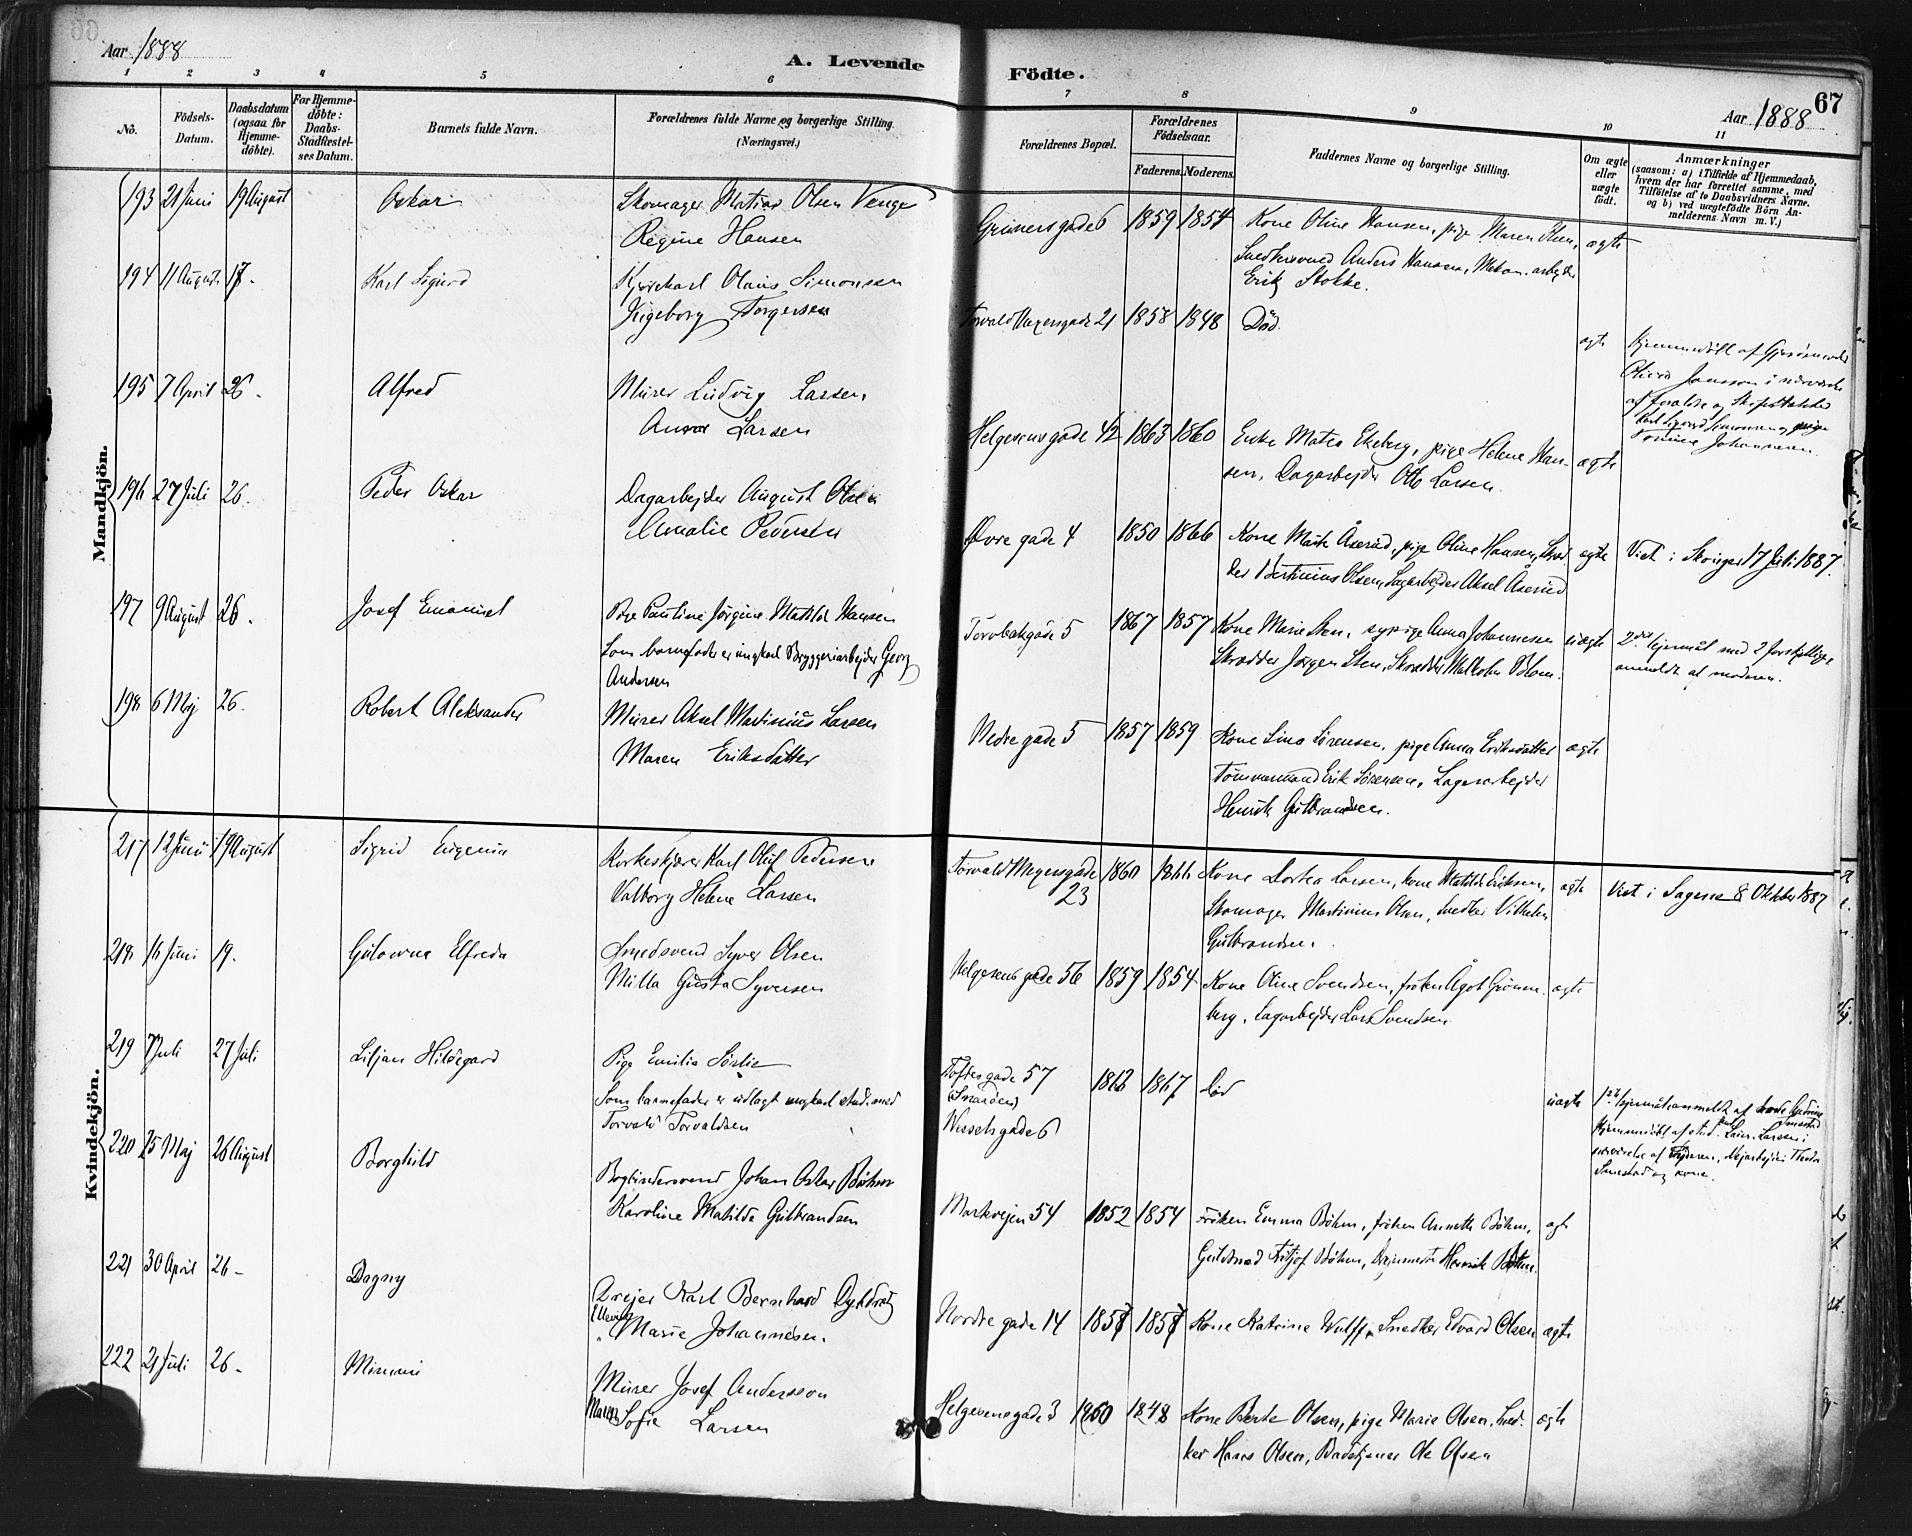 Aar 1888
A. Levende
1 2 3 4 5 6
No.
Födsels-
Datum.
Daabsdatum
(ogsaa for
Hjemme-
döbte).
For Hjemme-
döbte:
Daabs-
Stadfæstel-
ses Datum.
Barnets fulde Navn.
Forældrenes fulde Navne og borgerlige Stilling.
(Næringsvei.)
Mandkjön.
193 21 Juni 19 August Oskar Skomager Matias Olsen Venge
Regine Hansen
194 11 August 17. Karl Sigurd Kjørekarl Olaus Simonsen
Ingeborg Torgersen
195 7 April 26. Alfred Murer Ludvig Larsen
Anna Larsen
196 27 Juli 26. Peder Oskar Dagarbejder August Olsen
Amalie Pedersen
197 9 August 26. Josef Emanuel Pige Pauline Jørgine Matilde Hansen
Som barnefader er ungkarl Bryggeriarbejder Georg
Andersen
198 6 Maj 26. Robert Aleksander Murer Aksel Martinius Larsen
Maren Eriksdatter
Kvindekjön.
217 12 Juni 19 August Sigrid Eugenia Korkeskjærer Karl Oluf Pedersen
Valborg Helene Larsen
218 16 Juni 19. Gulovna Elfreda Smedsvend Syver Olsen
Milla Gusta Syversen
219 7 Juli 27 Juli Liljan Hildegard Pige Emilie Sørlie
Som barnefader er udlagt ungkarl stud. med
Torvald Torvaldsen
220 25 Maj 26 August Borghild Bogbindersvend Johan Oskar Bøhm
Karoline Matilde Gulbrandsen
221 30 April 26 - Dagny Drejer Karl Bernhard Dyhdratz
Marie Johannesen.
222 21 Juli 26 - Mimmi Murer Josef Andersson
Maren Sofie Larsen
Födte.
67
Aar 1888
7 8 9 10 11
Forældrenes Bopæl.
Forældrenes
Födselsaar.
Faderens. Moderens.
Faddernes Navne og borgerlige Stilling.
Om ægte
eller
uægte
födt.
Anmærkninger
(saasom: a) i Tilfælde af Hjemmedaab,
hvem der har forrettet samme, med
Tilföielse af to Daabsvidners Navne.
og b) ved uægtefödte Börn An-
melderens Navn m. V.)
Grünersgade 6 1859 1854 Kone Oline Hansen, pige Maren Olsen, ægte
Snedkersvend Anders Hansen, Mekan. arbejder
Erik Stokke.
Torvald Meyersgade 21 1858 1848 Død. ægte
Hjemmedøbt af
Jansson i nærværelse
af forældre og
Karl Sigvard Simonsen og pige
Johannesen.
Helgesensgade 42 1863 1860 Enke Matea Ekeberg, pige Helene Han- ægte
sen, Dagarbejder Otto Larsen.
Øvre gade 4 1850 1866 Kone Marte Åserud, pige Oline Hansen, Skræd- ægte Viet i Skoger 17 Juli 1887.
der Bertinius Olsen, Lagarbejder Aksel Åserud
Torvbakgade 5 1867 1857 Kone Marie Sten, sypige Anna Johannesen uægte 2det lejermål med 2 forskjellige,
Skrædder Jørgen Sten, Skrædder Blom. anmeldt af moderen.
Nedre gade 5 1857 1859 Kone Lina Sørensen, pige Anna Eriksdatter ægte
Tømmermand Erik Sørensen, Lagerarbejder
Henrik Gulbrandsen.
Torvald Meyersgade 1860 1866 Kone Dortea Larsen, kone Matilde Eriksen, ægte Viet i Sagene 8 Oktober 1887
23
Skomager Martinius Olsen, Snedker Vilhelm
Gulbrandsen.
Helgesensgade 56 1859 1854 Kone Oline Svendsen, frøken Ågot Grønne- ægte
berg, Lagarbejder Lars Svendsen
Toftesgade 57 1862 1867 Død uægte 1ste lejermål anmeldt af
Hjemmedøbt af stud. Larsen i
nærværelse af Theodor
Smestad og kone.
Wesselsgade 6
Markvejen 54 1852 1854 Frøken Emma Bøhm, frøken Annette Bøhm, ægte
Guldsmed Fritjof Bøhm, Henrik Bøhm.
Nordre gade 14 1857 1857 Kone Katrine Wulff, Snedker Edvard Olsen ægte
Helgesensgade 3 1860 1848 Kone Berte Olsen, pige Marie Olsen, Sned- ægte
ker Hans Olsen, Badetjener Ole Olsen